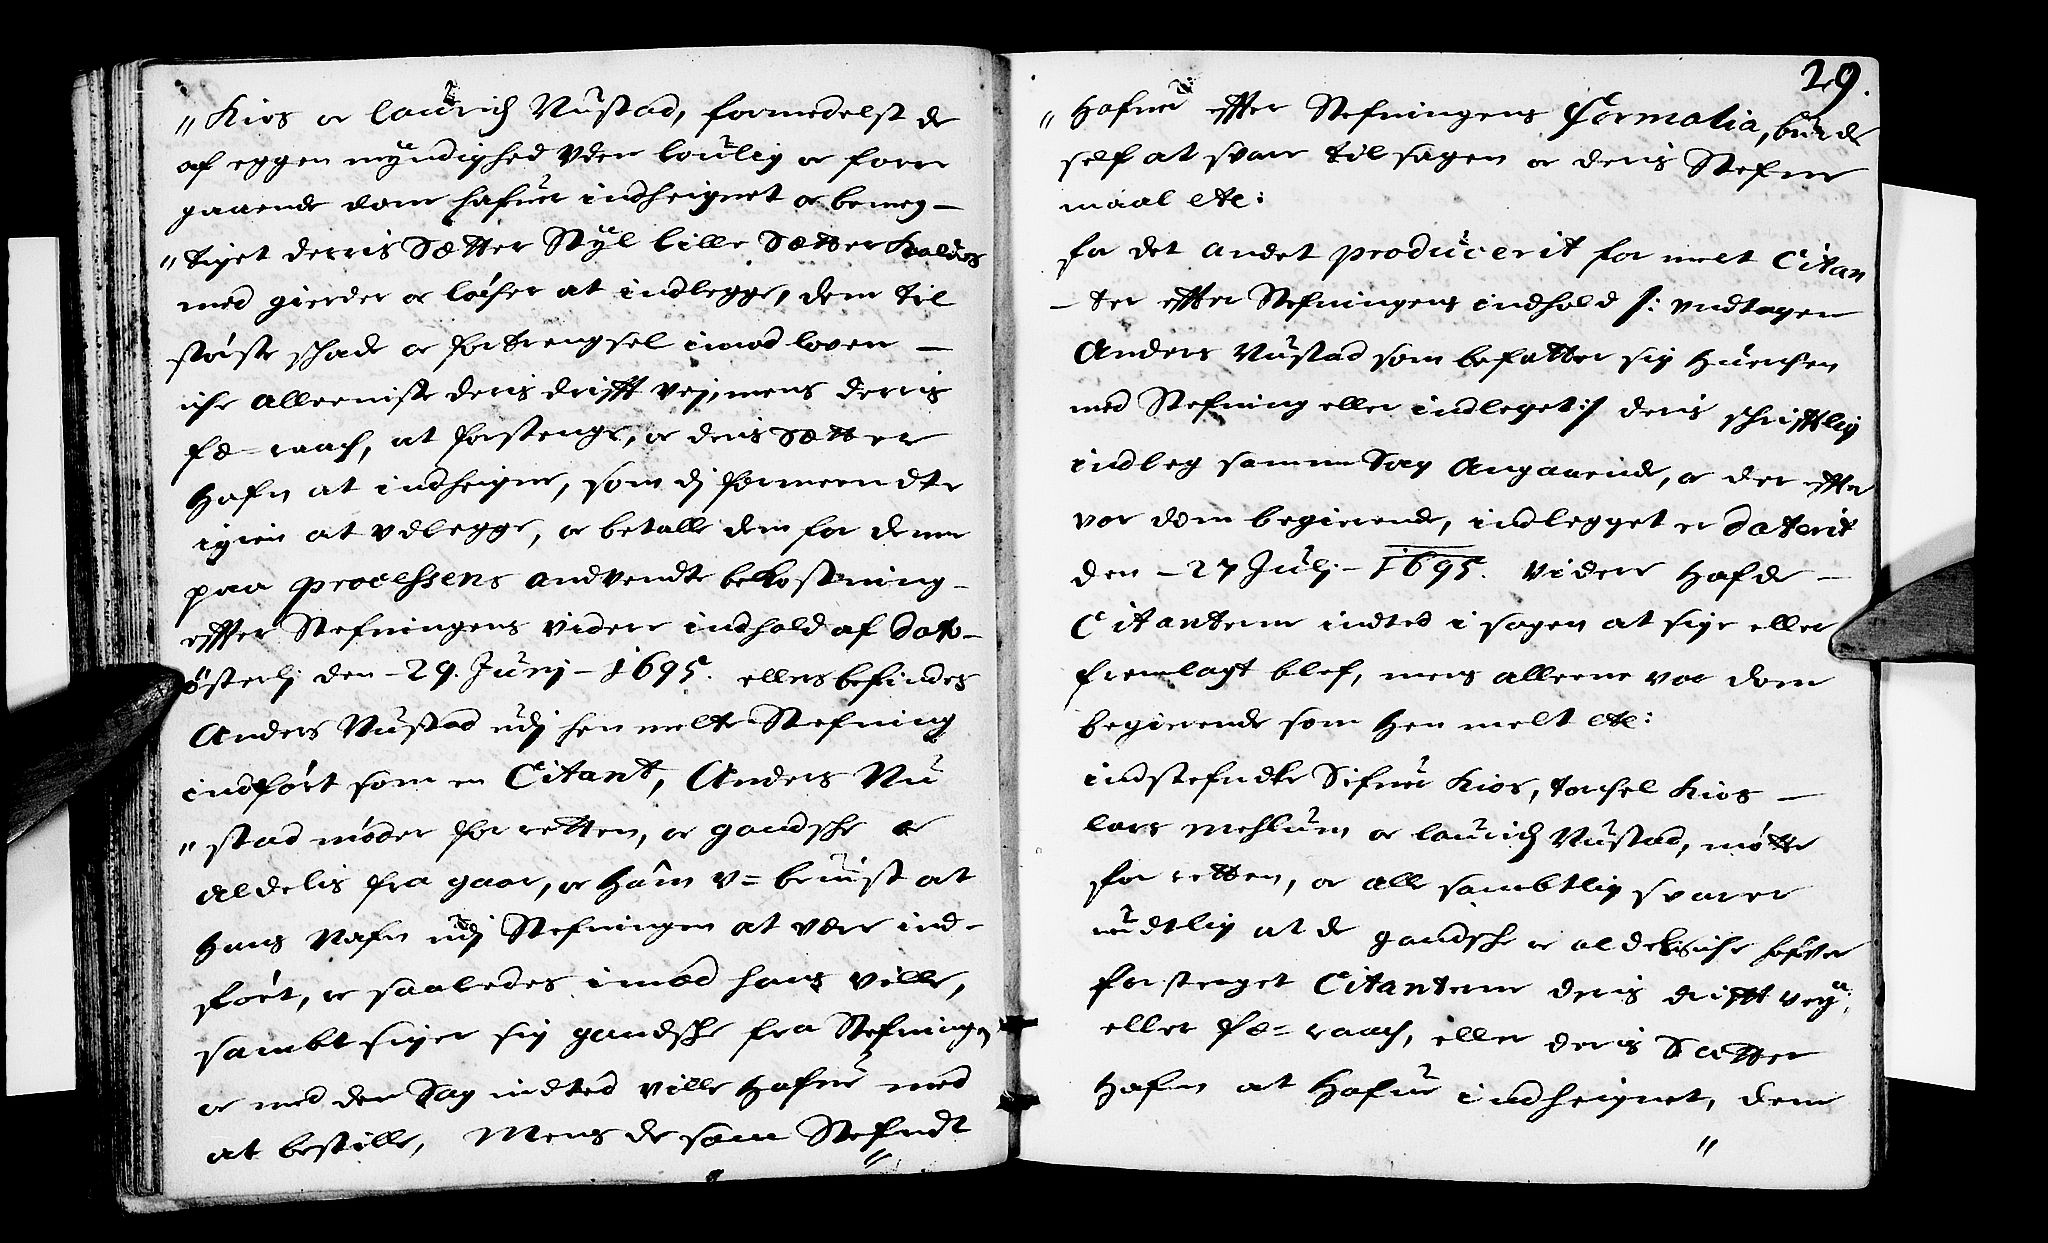 „ Kios oc lauridz Nustad, formedelst de
af eggen myndighed vden loulig oc fore
gaaende dom hafuer indheignet oc bemeg-
„ tiget derris Sætter Myl lille Sætter kaldes
med gierder oc løcher at indlegge, dem til
støiste schade oc fortrengsel imod loven -
iche alleeniste deris drifft vej, mens derris
fæ-raach, at forstenge, oc deris Sætter
Hafn at indheigne, som dj formeendte
igien at vdlegge, oc betalle dem for denne
paa processens andvendte bekostning -
effter Stefningens videre indhold af dato -
Østerlj den - 29. Junj - 1695. ellers befindes
Anders Nustad udj hen melte Stefning
indført som en Citant, Anders Nu
„ stad møder for retten, oc gandsche oc
aldelis fra gaar, oc Ham v=beuist at
Hans Nafn udj Stefningen at være ind-
ført, oc saaledes imod hans ville,
sambt siger sig gandsche fra Stefningen
oc med den Sag indted ville Hafue med
at bestille, Mens de som Stefndt
„
29.
„ Hafuer effter Stefningens Formalia, burde
self at svare til sagen oc deris Stefne
maal etc:
for det andet producerit for melt Citan
- ter effter Stefningens indhold /: vndtagen
Anders Nustad som befatter sig Huerchen
med Stefning eller indleget :/ deris schrifftlig
indleg samme Sag Angaaende, oc der effter
vor dom begierende, indlegget er daterit
den - 27 Julj - 1695. Videre Hafde -
Citanterne indted i sagen at sige eller
fremlagt blef, mens alleene vor dom
begierende som Hen melt etc:
indstefndte Sifuer Kios, torchel Kios -
lars Mehlum oc lauridz Nustad, møtte
for retten, oc alle sambtlig svarer
mudtlig at de gandsche oc aldelis iche hafver
forstenget Citanterne deris drifft vey:
eller fæ=raach, eller deris Sætter
Hafn at Hafue indheignet, dem
„